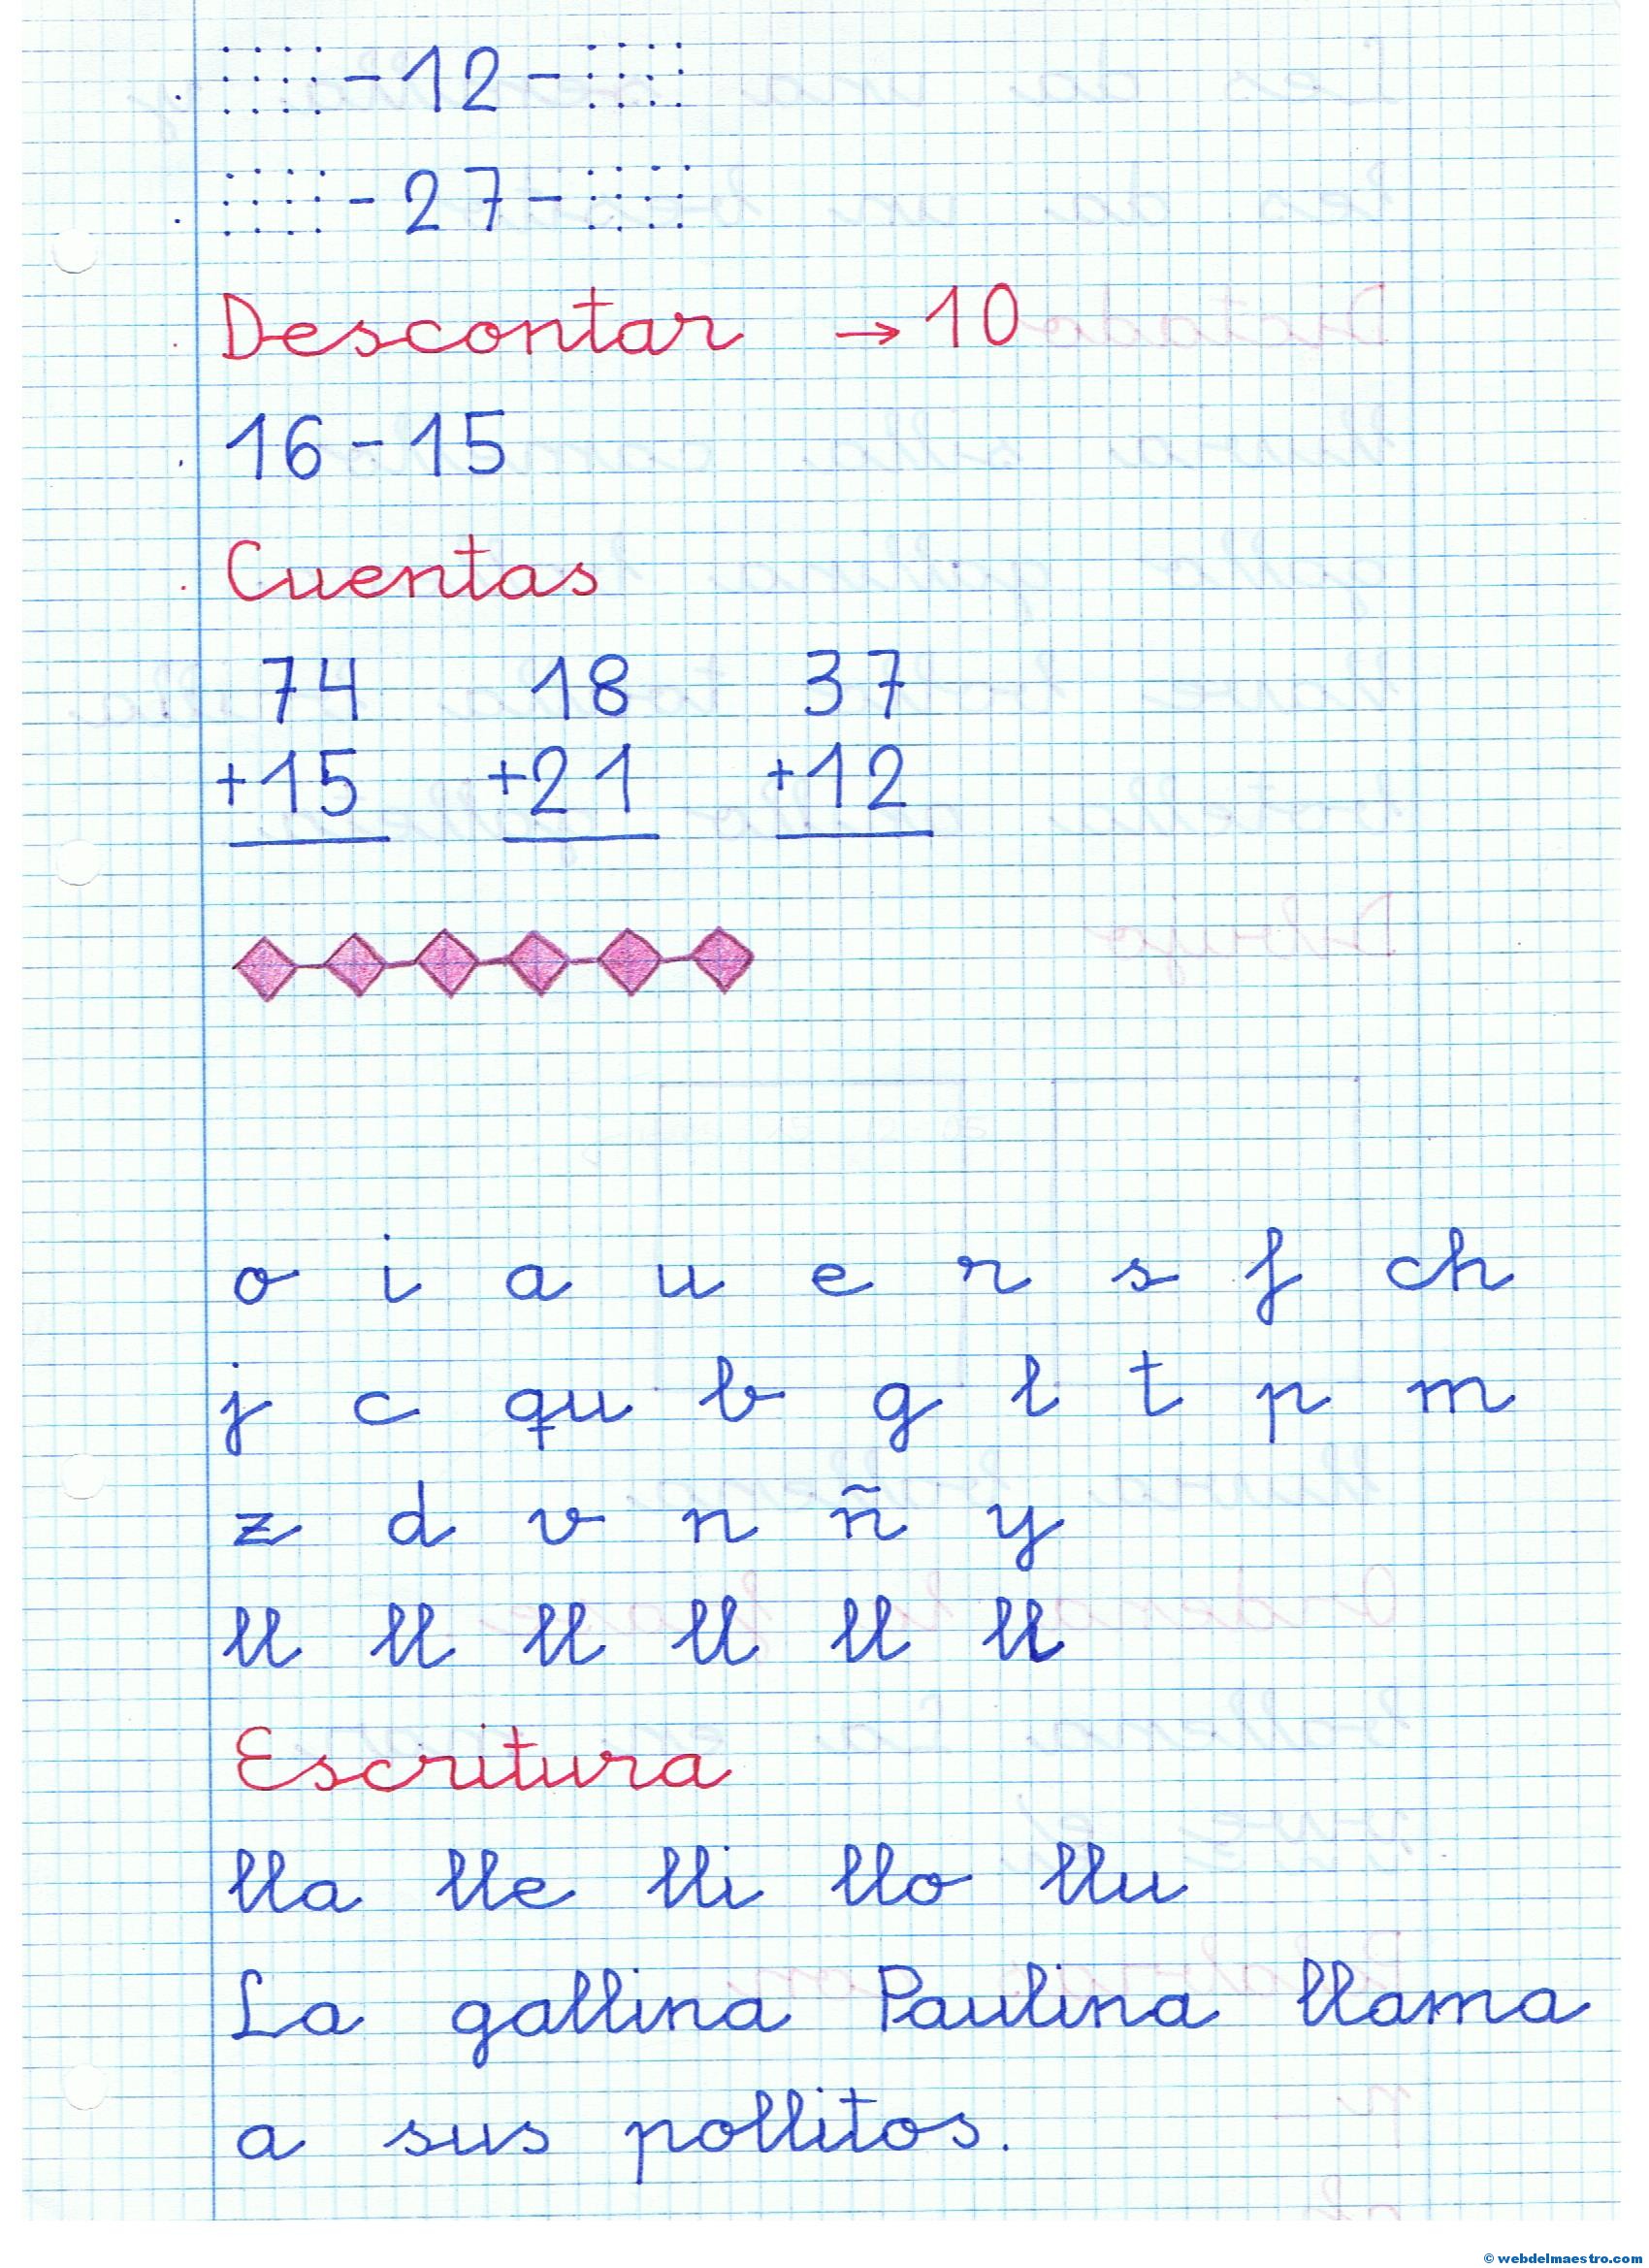 -12-
-27-
Descontar → 10
16-15
Cuentas
74 18 37
+15 +21 +12
o i a u e r s f ch
j c qu b g l t p m
z d v n ñ y
ll ll ll ll ll ll
Escritura
lla lle lli llo llu
La gallina Paulina llama
a sus pollitos.
© webdelmaestro.com